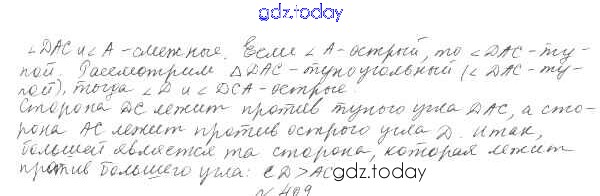 gdz.today
∠DAC и ∠A-смежные. Если ∠A-острый, то ∠DAC-ту-
пой. Рассмотрим △DAC-тупоугольный (∠DAC-ту-
пой), тогда ∠D и ∠DCA-острые.
Сторона DC лежит против тупого угла DAC, а сто-
рона AC лежит против острого угла D. Итак,
большей является та сторона, которая лежит
против большего угла: CD > AC.
gdz.today
№ 409